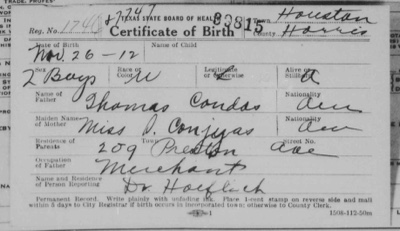 TEXAS STATE BOARD OF HEALTH 33815 Town Houston
Reg. No. Certificate of Birth County Harris
Date of Birth Name of Child
Nov. 26-12
Sex Race or Color Legitimate or otherwise Alive or Stillborn
2 Boys W L A
Name of Father Nationality
Thomas Condas
Maiden Name of Mother Nationality
Miss
Residence of Parents Town Street No.
209 Preston ave
Occupation of Father
Merchant
Name and Residence of Person Reporting
Dr
Permanent Record. Write plainly with unfading ink. Place 1-cent stamp on reverse side and mail
within 5 days to City Registrar if birth occurs in incorporated town; otherwise to County Clerk.
1508-112-50m